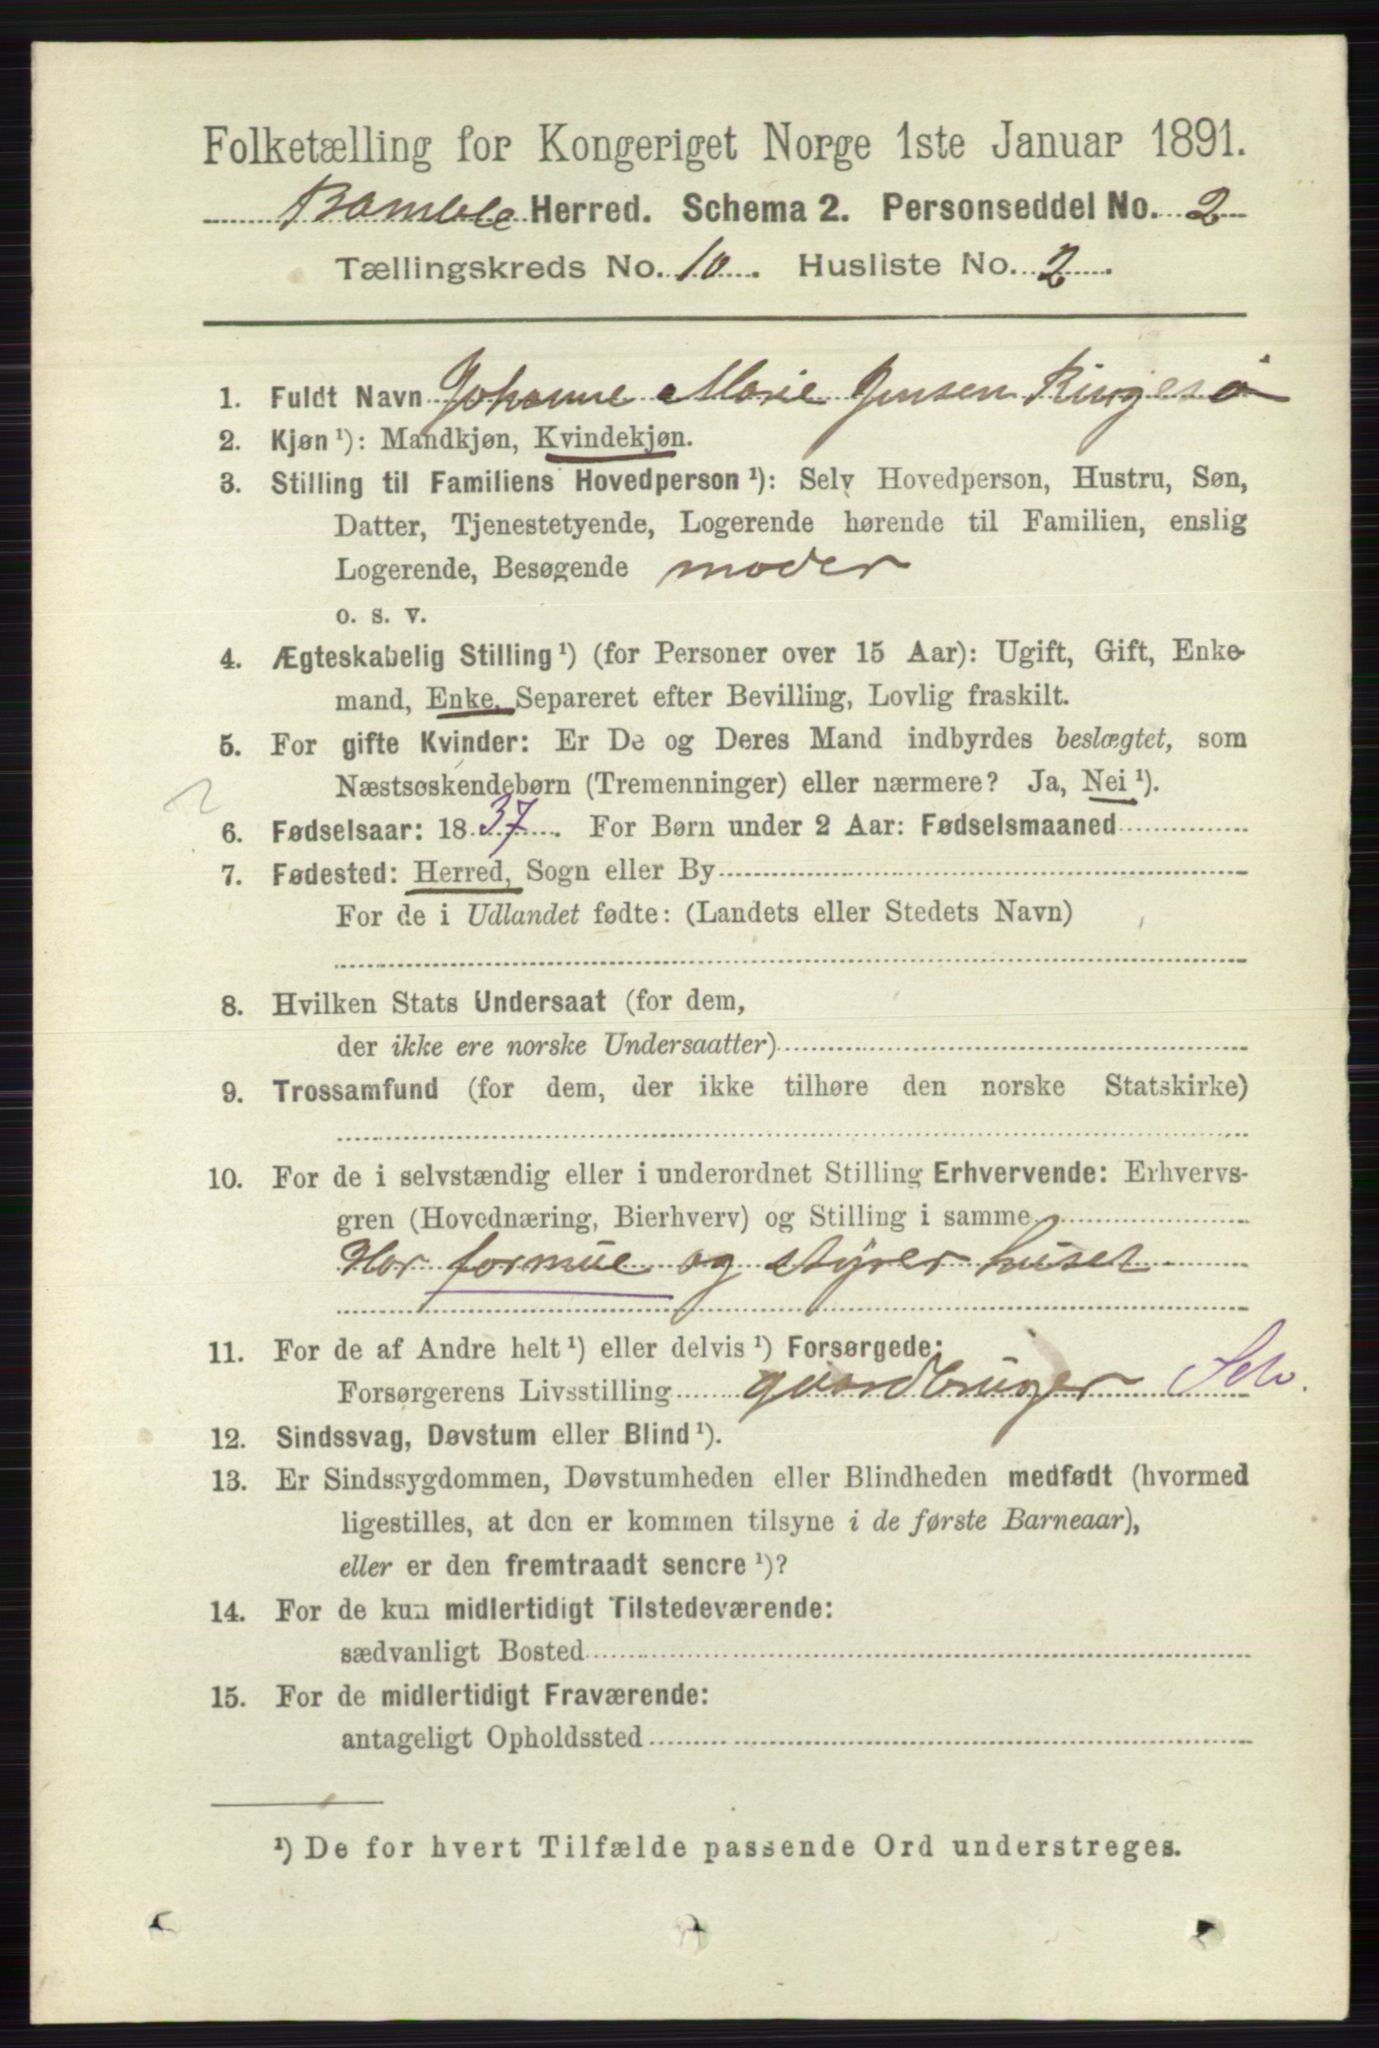 Folketælling for Kongeriget Norge 1ste Januar 1891.
Bamble Herred. Schema 2. Personseddel No. 2
Tællingskreds No. 10. Husliste No. 2.
1. Fuldt Navn Johanne Marie Jensen Ringesø
2. Kjøn ¹): Mandkjøn, Kvindekjøn.
3. Stilling til Familiens Hovedperson ¹): Selv Hovedperson, Hustru, Søn,
Datter, Tjenestetyende, Logerende hørende til Familien, enslig
Logerende, Besøgende moder
o. s. v.
4. Ægteskabelig Stilling ¹) (for Personer over 15 Aar): Ugift, Gift, Enke-
mand, Enke, Separeret efter Bevilling, Lovlig fraskilt.
5. For gifte Kvinder: Er De og Deres Mand indbyrdes beslægtet, som
Næstsøskendebørn (Tremenninger) eller nærmere? Ja, Nei ¹).
2
6. Fødselsaar: 1837. For Børn under 2 Aar: Fødselsmaaned
7. Fødested: Herred, Sogn eller By
For de i Udlandet fødte: (Landets eller Stedets Navn)
8. Hvilken Stats Undersaat (for dem,
der ikke ere norske Undersaatter)
9. Trossamfund (for dem, der ikke tilhøre den norske Statskirke)
10. For de i selvstændig eller i underordnet Stilling Erhvervende: Erhvervs-
gren (Hovednæring, Bierhverv) og Stilling i samme
Har formue og styrer huset
11. For de af Andre helt ¹) eller delvis ¹) Forsørgede:
Forsørgerens Livsstilling gaardbruger Selv.
12. Sindssvag, Døvstum eller Blind ¹).
13. Er Sindssygdommen, Døvstumheden eller Blindheden medfødt (hvormed
ligestilles, at den er kommen tilsyne i de første Barneaar),
eller er den fremtraadt senere ¹)?
14. For de kun midlertidigt Tilstedeværende:
sædvanligt Bosted
15. For de midlertidigt Fraværende:
antageligt Opholdssted
¹) De for hvert Tilfælde passende Ord understreges.